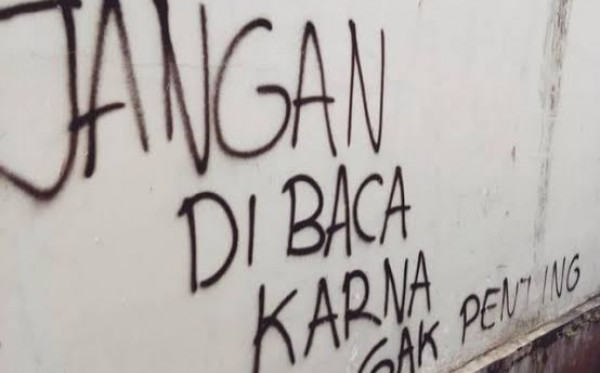 JANGAN
DI BACA
KARNA
GAK PENTING